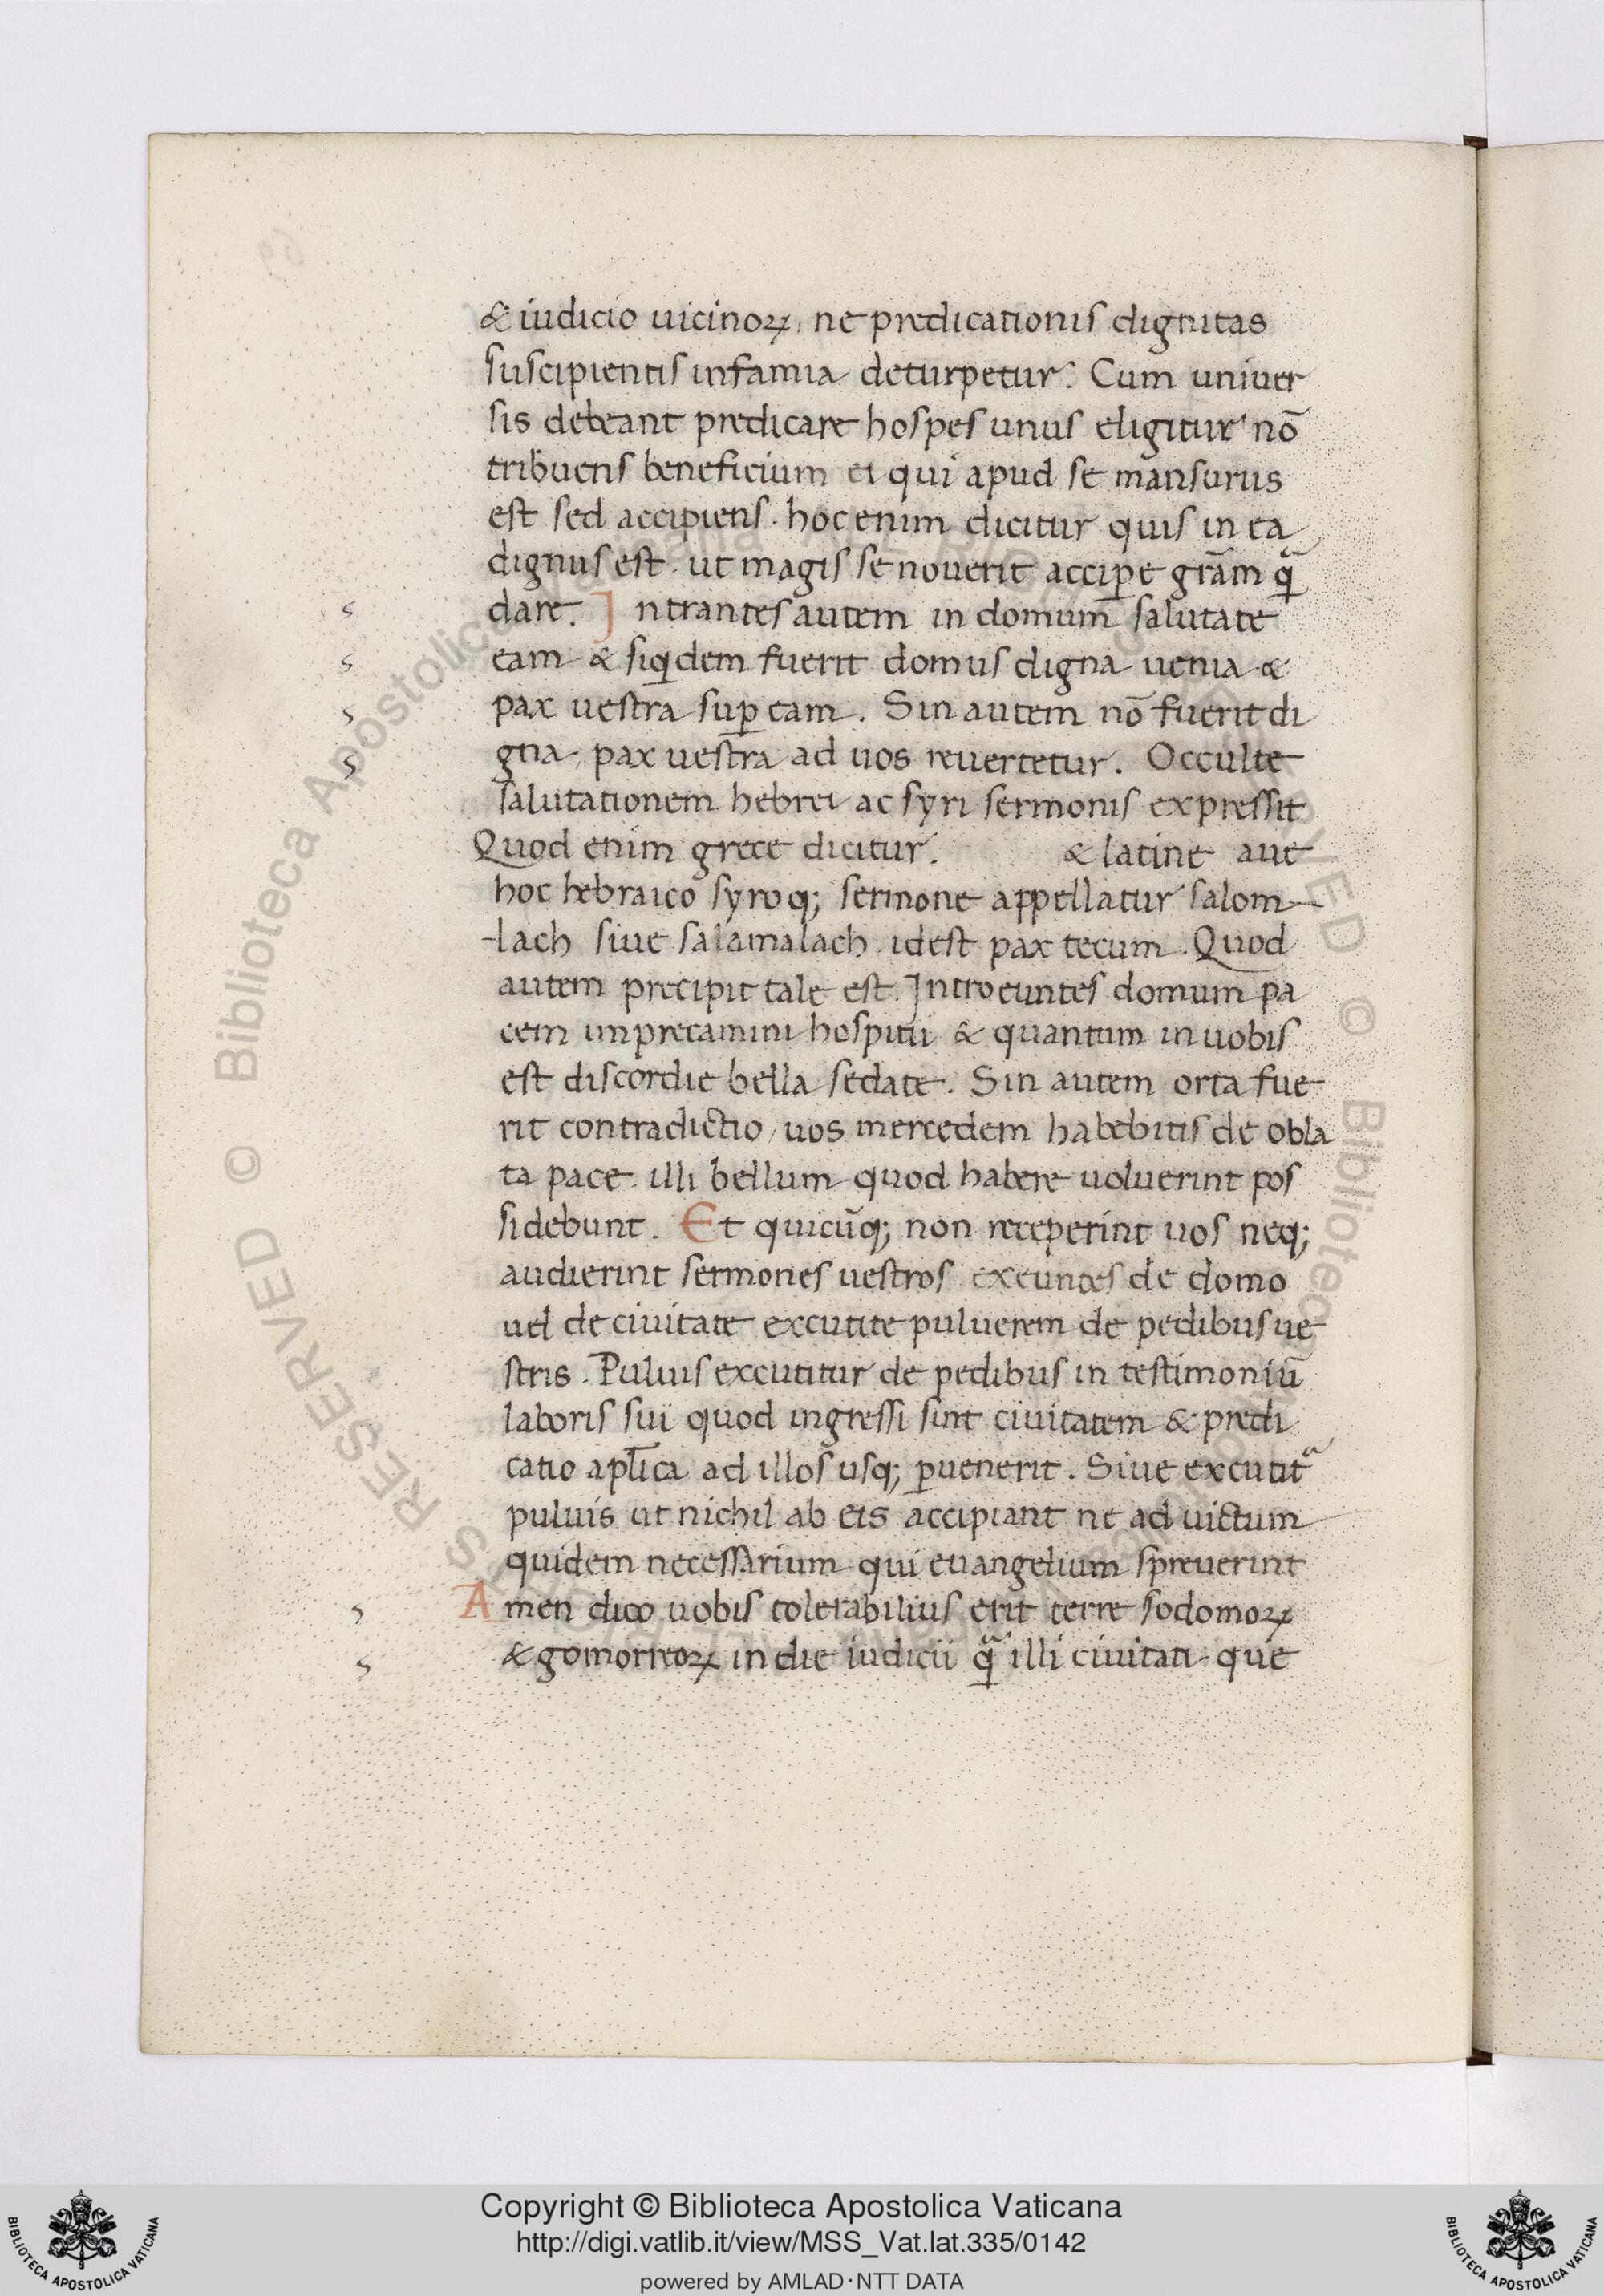 & iudicio uicinoꝝ, ne predicationis dignitas
suscipientis infamia deturpetur. Cum univer
sis debeant predicare hospes unus eligitur nō
tribuens beneficium ei qui apud se mansurus
est sed accipiens. hoc enim dicitur quis in ea
dignus est. ut magis se noverit accipe̅ gr̄am qᷓ
dare. Intrantes autem in domum salutate
eam & siqͥdem fuerit domus digna uenia &
pax uestra suꝑ eam. Sin autem nō fuerit di
gna, pax uestra ad uos reuertetur. Occulte
salutationem hebrei ac syri sermonis expressit
Quod enim grece dicitur. & latine aue
hoc hebraico syroq; sermone appellatur salom-
-lach siue salamalach. idest pax tecum. Quod
autem precipit tale est. Introeuntes domum pa
cem imprecamini hospitii & quantum in uobis
est discordie bella sedate. Sin autem orta fue
rit contradictio, uos mercedem habebitis de obla
ta pace. illi bellum quod habere uoluerint pos
sidebunt. Et quicūq; non receperint uos neq;
audierint sermones uestros exeuntes de domo
uel de ciuitate excutite puluerem de pedibus ue
stris. Puluis excutitur de pedibus in testimoniū
laboris sui quod ingressi sint ciuitatem & predi
catio apl̄ica ad illos usq; ꝑuenerit. Siue excutitᷓ
puluis ut nichil ab eis accipiant ne ad uictum
quidem necessarium qui euangelium spreuerint
Amen dico uobis tolerabilius erit terre sodomoꝝ
& gomorreoꝝ in die iudicii qᷓ illi ciuitati. que
Copyright © Biblioteca Apostolica Vaticana
http://digi.vatlib.it/view/MSS_Vat.lat.335/0142
powered by AMLAD·NTT DATA
BIBLIOTECA APOSTOLICA VATICANA
BIBLIOTECA APOSTOLICA VATICANA